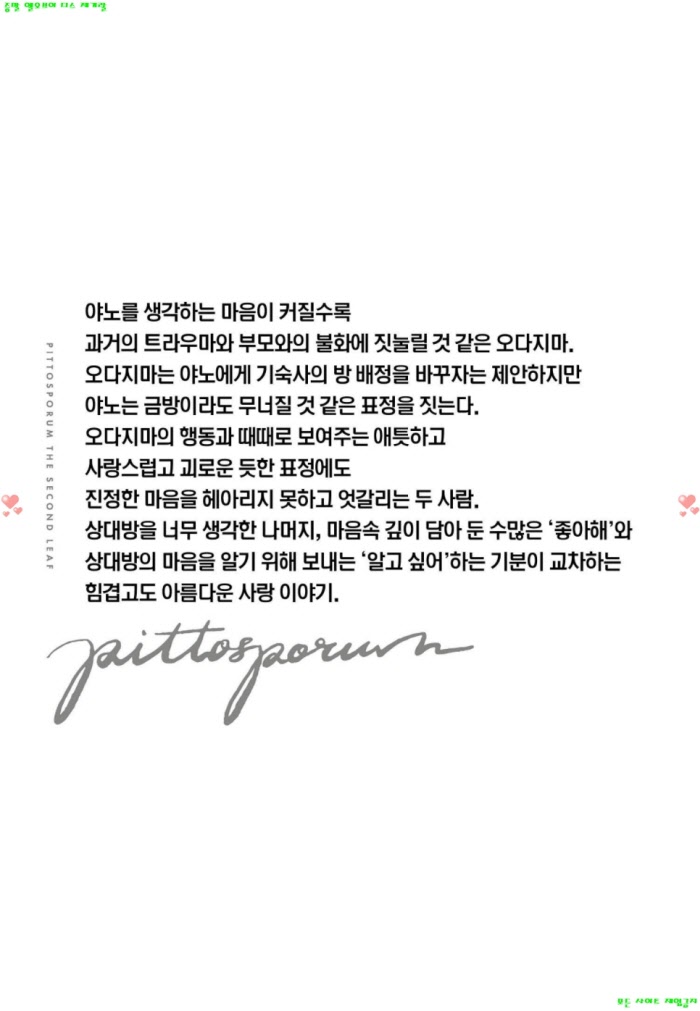 야노를 생각하는 마음이 커질수록
과거의 트라우마와 부모와의 불화에 짓눌릴 것 같은 오다지마.
오다지마는 야노에게 기숙사의 방 배정을 바꾸자는 제안하지만
야노는 금방이라도 무너질 것 같은 표정을 짓는다.
오다지마의 행동과 때때로 보여주는 애틋하고
사랑스럽고 괴로운 듯한 표정에도
진정한 마음을 헤아리지 못하고 엇갈리는 두 사람.
상대방을 너무 생각한 나머지, 마음속 깊이 담아 둔 수많은 ‘좋아해’와
상대방의 마음을 알기 위해 보내는 ‘알고 싶어’하는 기분이 교차하는
힘겹고도 아름다운 사랑 이야기.
PITTOSPORUM THE SECOND LEAF
pittosporum
모든 사이트 재업금지